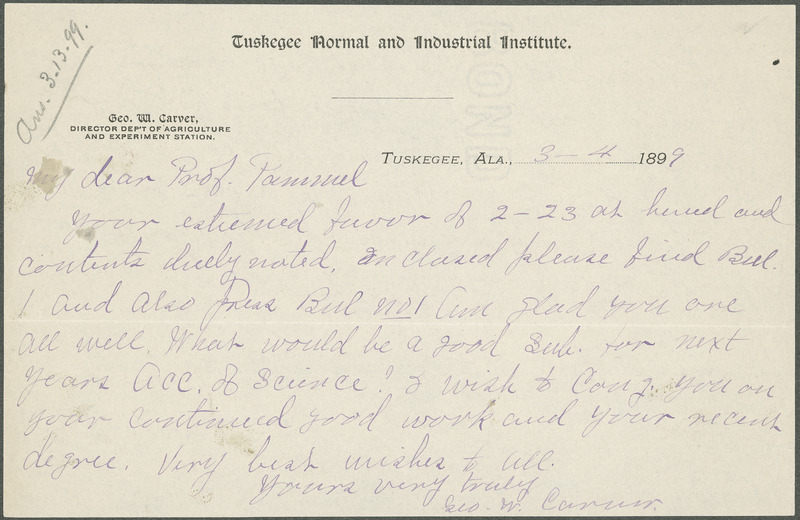 Ans. 3-13-99.
Tuskegee Normal and Industrial Institute.
Geo. W. Carver,
DIRECTOR DEP'T OF AGRICULTURE
AND EXPERIMENT STATION.
TUSKEGEE, ALA., 3-4 1899
My dear Prof. Pammel
Your esteemed favor of 2-23 at hand and
contents duely noted. Enclosed please find Bul.
1 and also Press Bul no 1 Am glad you are
all well. What would be a good Sub. for next
years Acc. of Science? I wish to Cong. you on
your continued good work and your recent
degree. Very best wishes to all.
Yours very truly
Geo. W. Carver.